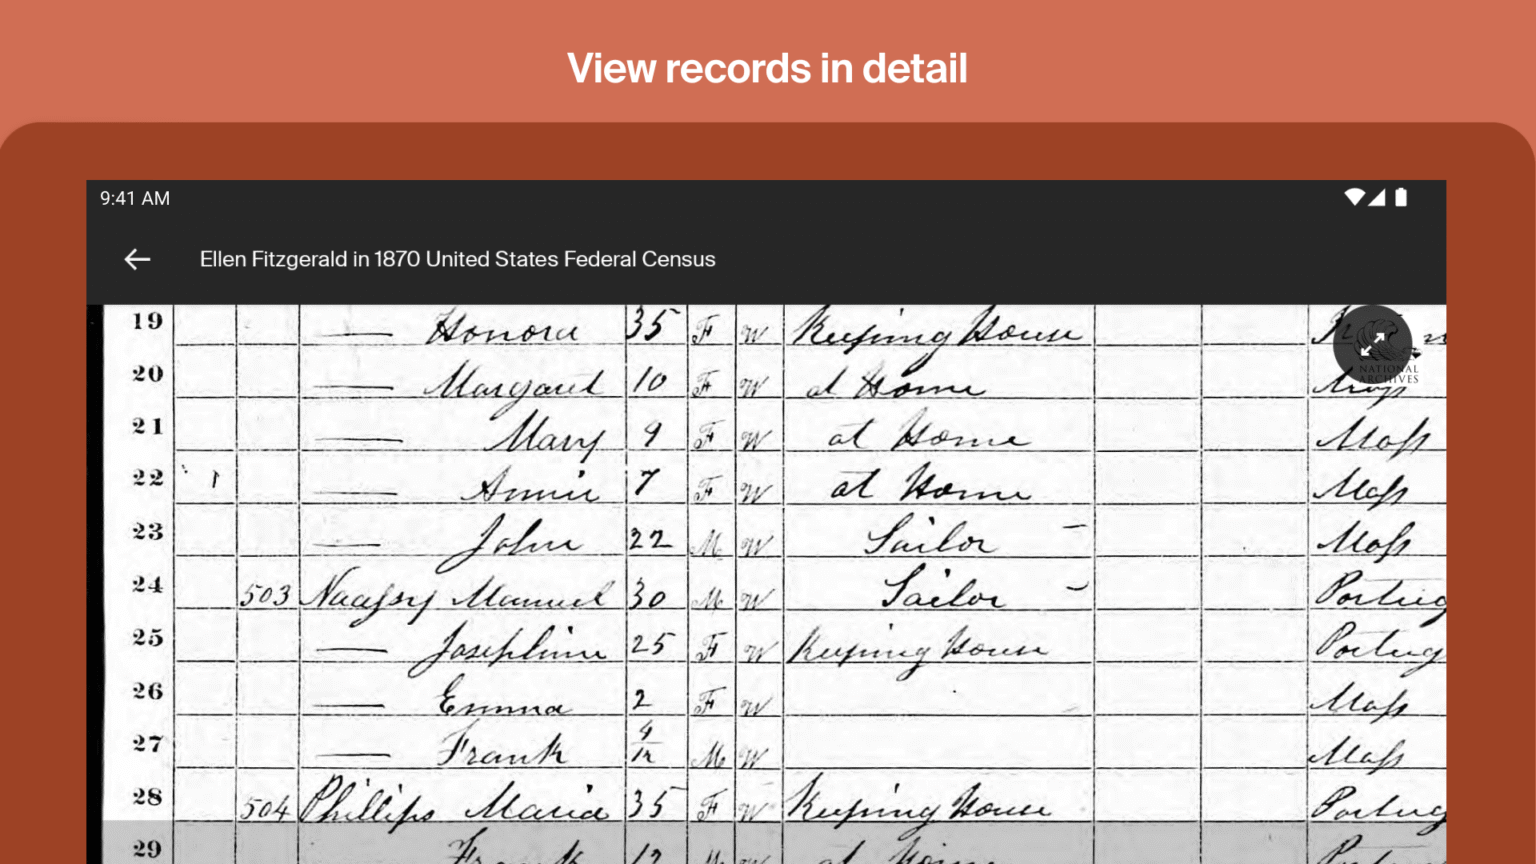 View records in detail
9:41 AM
Ellen Fitzgerald in 1870 United States Federal Census
19 Honora 35 F W Keeping House
NATIONAL ARCHIVES
20 Margaret 10 F W at Home Mass
21 Mary 9 F W at Home Mass
22 1 Annie 7 F W at Home Mass
23 John 22 M W Sailor Mass
24 503 Manuel 30 M W Sailor Portug
25 Josephine 25 F W Keeping House Portug
26 Emma 2 F W Mass
27 Frank 4/12 M W Mass
28 504 Phillips Maria 35 F W Keeping House Portug
29 Frank 12 M at Home